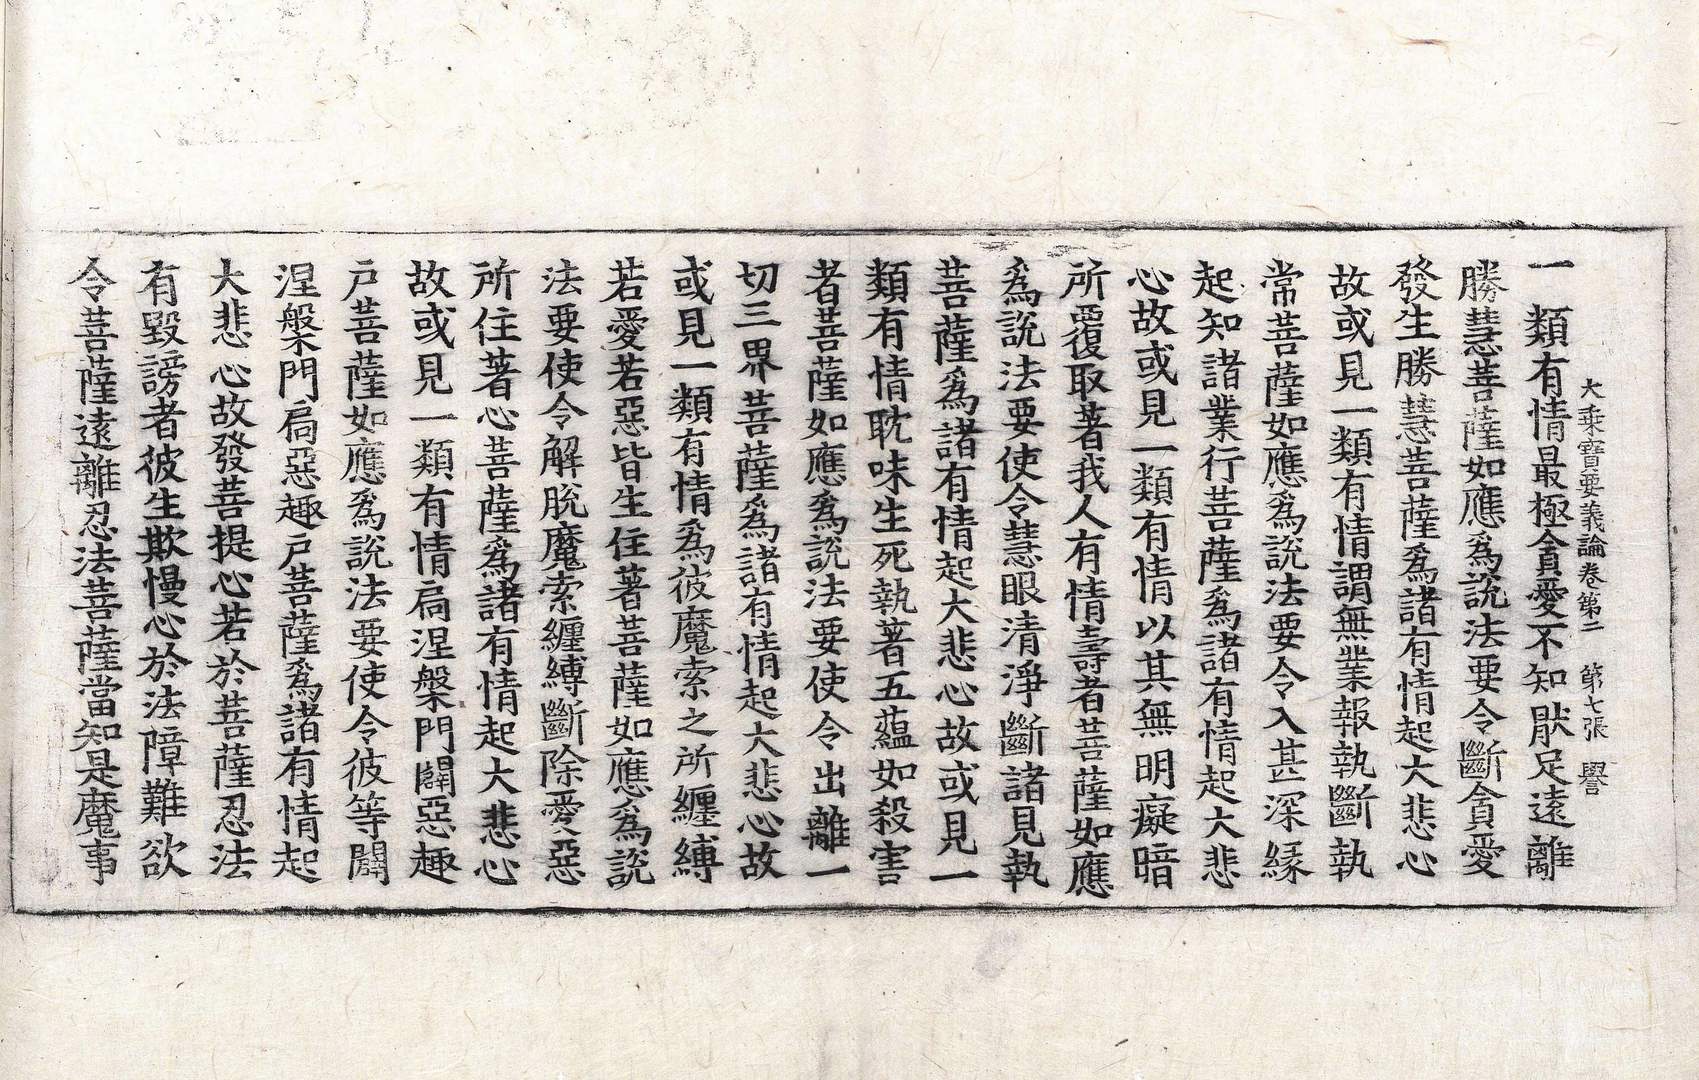 大乘寶要義論卷第二　第七張　譽
一類有情最極貪愛不知猒足遠離
勝慧菩薩如應爲說法要令斷貪愛
發生勝慧菩薩爲諸有情起大悲心
故或見一類有情謂無業報執斷執
常菩薩如應爲說法要令入甚深緣
起知諸業行菩薩爲諸有情起大悲
心故或見一類有情以其無明癡暗
所覆取著我人有情壽者菩薩如應
爲說法要使令慧眼清淨斷諸見執
菩薩爲諸有情起大悲心故或見一
類有情耽味生死執著五蘊如殺害
者菩薩如應爲說法要使令出離一
切三界菩薩爲諸有情起大悲心故
或見一類有情爲彼魔索之所纏縛
若愛若惡皆生住著菩薩如應爲說
法要使令解脫魔索纏縛斷除愛惡
所住著心菩薩爲諸有情起大悲心
故或見一類有情扃涅槃門闢惡趣
戶菩薩如應爲說法要使令彼等闢
涅槃門扃惡趣戶菩薩爲諸有情起
大悲心故發菩提心若於菩薩忍法
有毀謗者彼生欺慢心於法障難欲
令菩薩遠離忍法菩薩當知是魔事